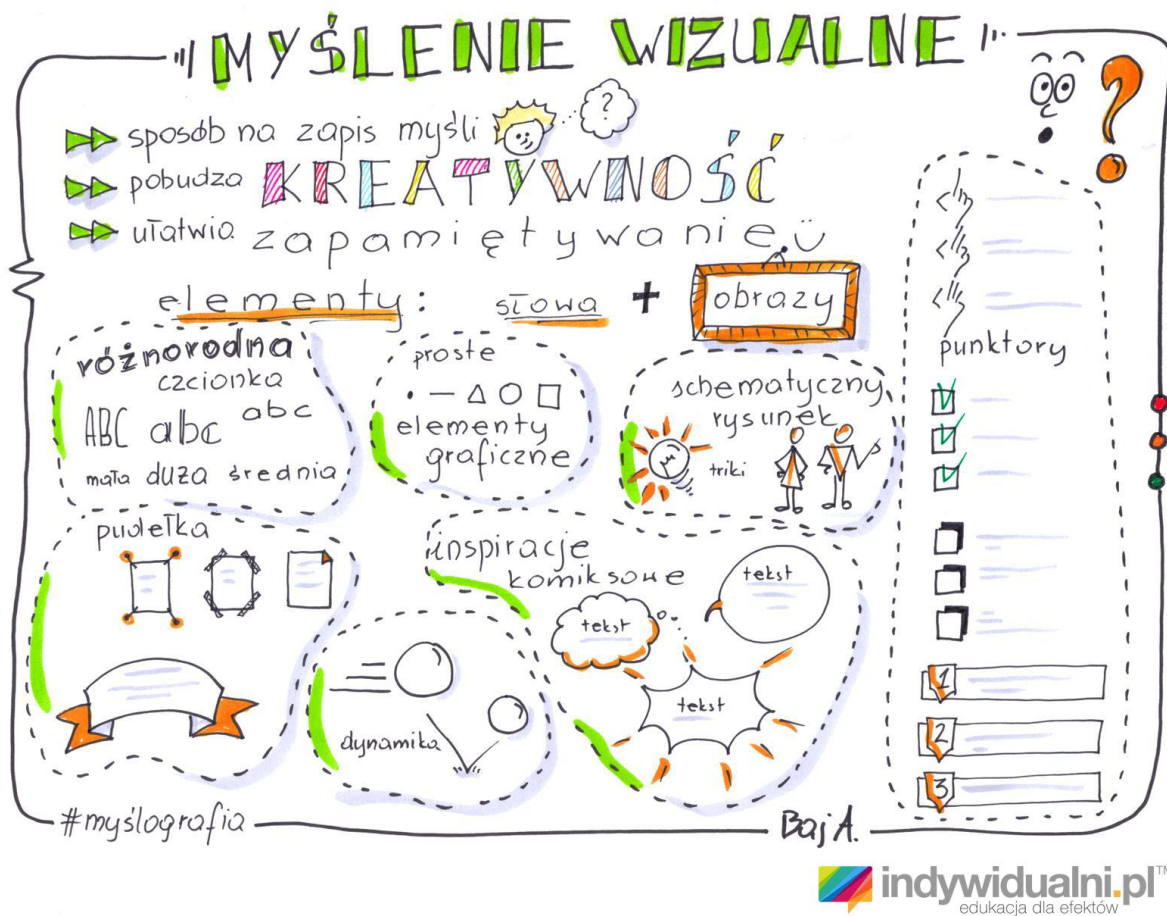 MYŚLENIE WIZUALNE
?
sposób na zapis myśli
?
pobudza KREATYWNOŚĆ
ułatwia zapamiętywanie
elementy: słowa + obrazy
różnorodna
czcionka
ABC abc abc
mała duża średnia
proste
elementy
graficzne
schematyczny
rysunek
triki
pudełka
inspiracje
komiksowe
tekst
tekst
tekst
dynamika
punktory
1
2
3
#myślografia
Baj A.
indywidualni.pl™
edukacja dla efektów